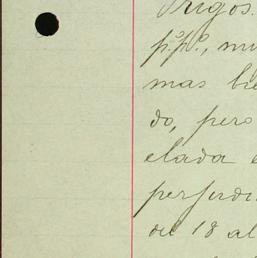 Trigos.
p.p.,
mas
do, pero
elada
perjudi
del 18 al